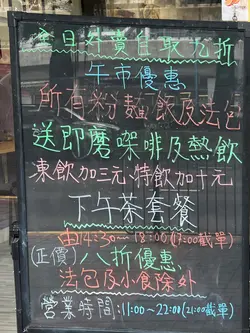 全日外賣自取九折
午市優惠
所有粉麵飯及法包
送即磨啡及熱飲
凍飲加三元·特飲加十元
下午茶套餐
由14:30～18:00(17:00截單)
(正價)八折優惠
法包及小食除外
營業時間:11:00～22:00(21:00截單)